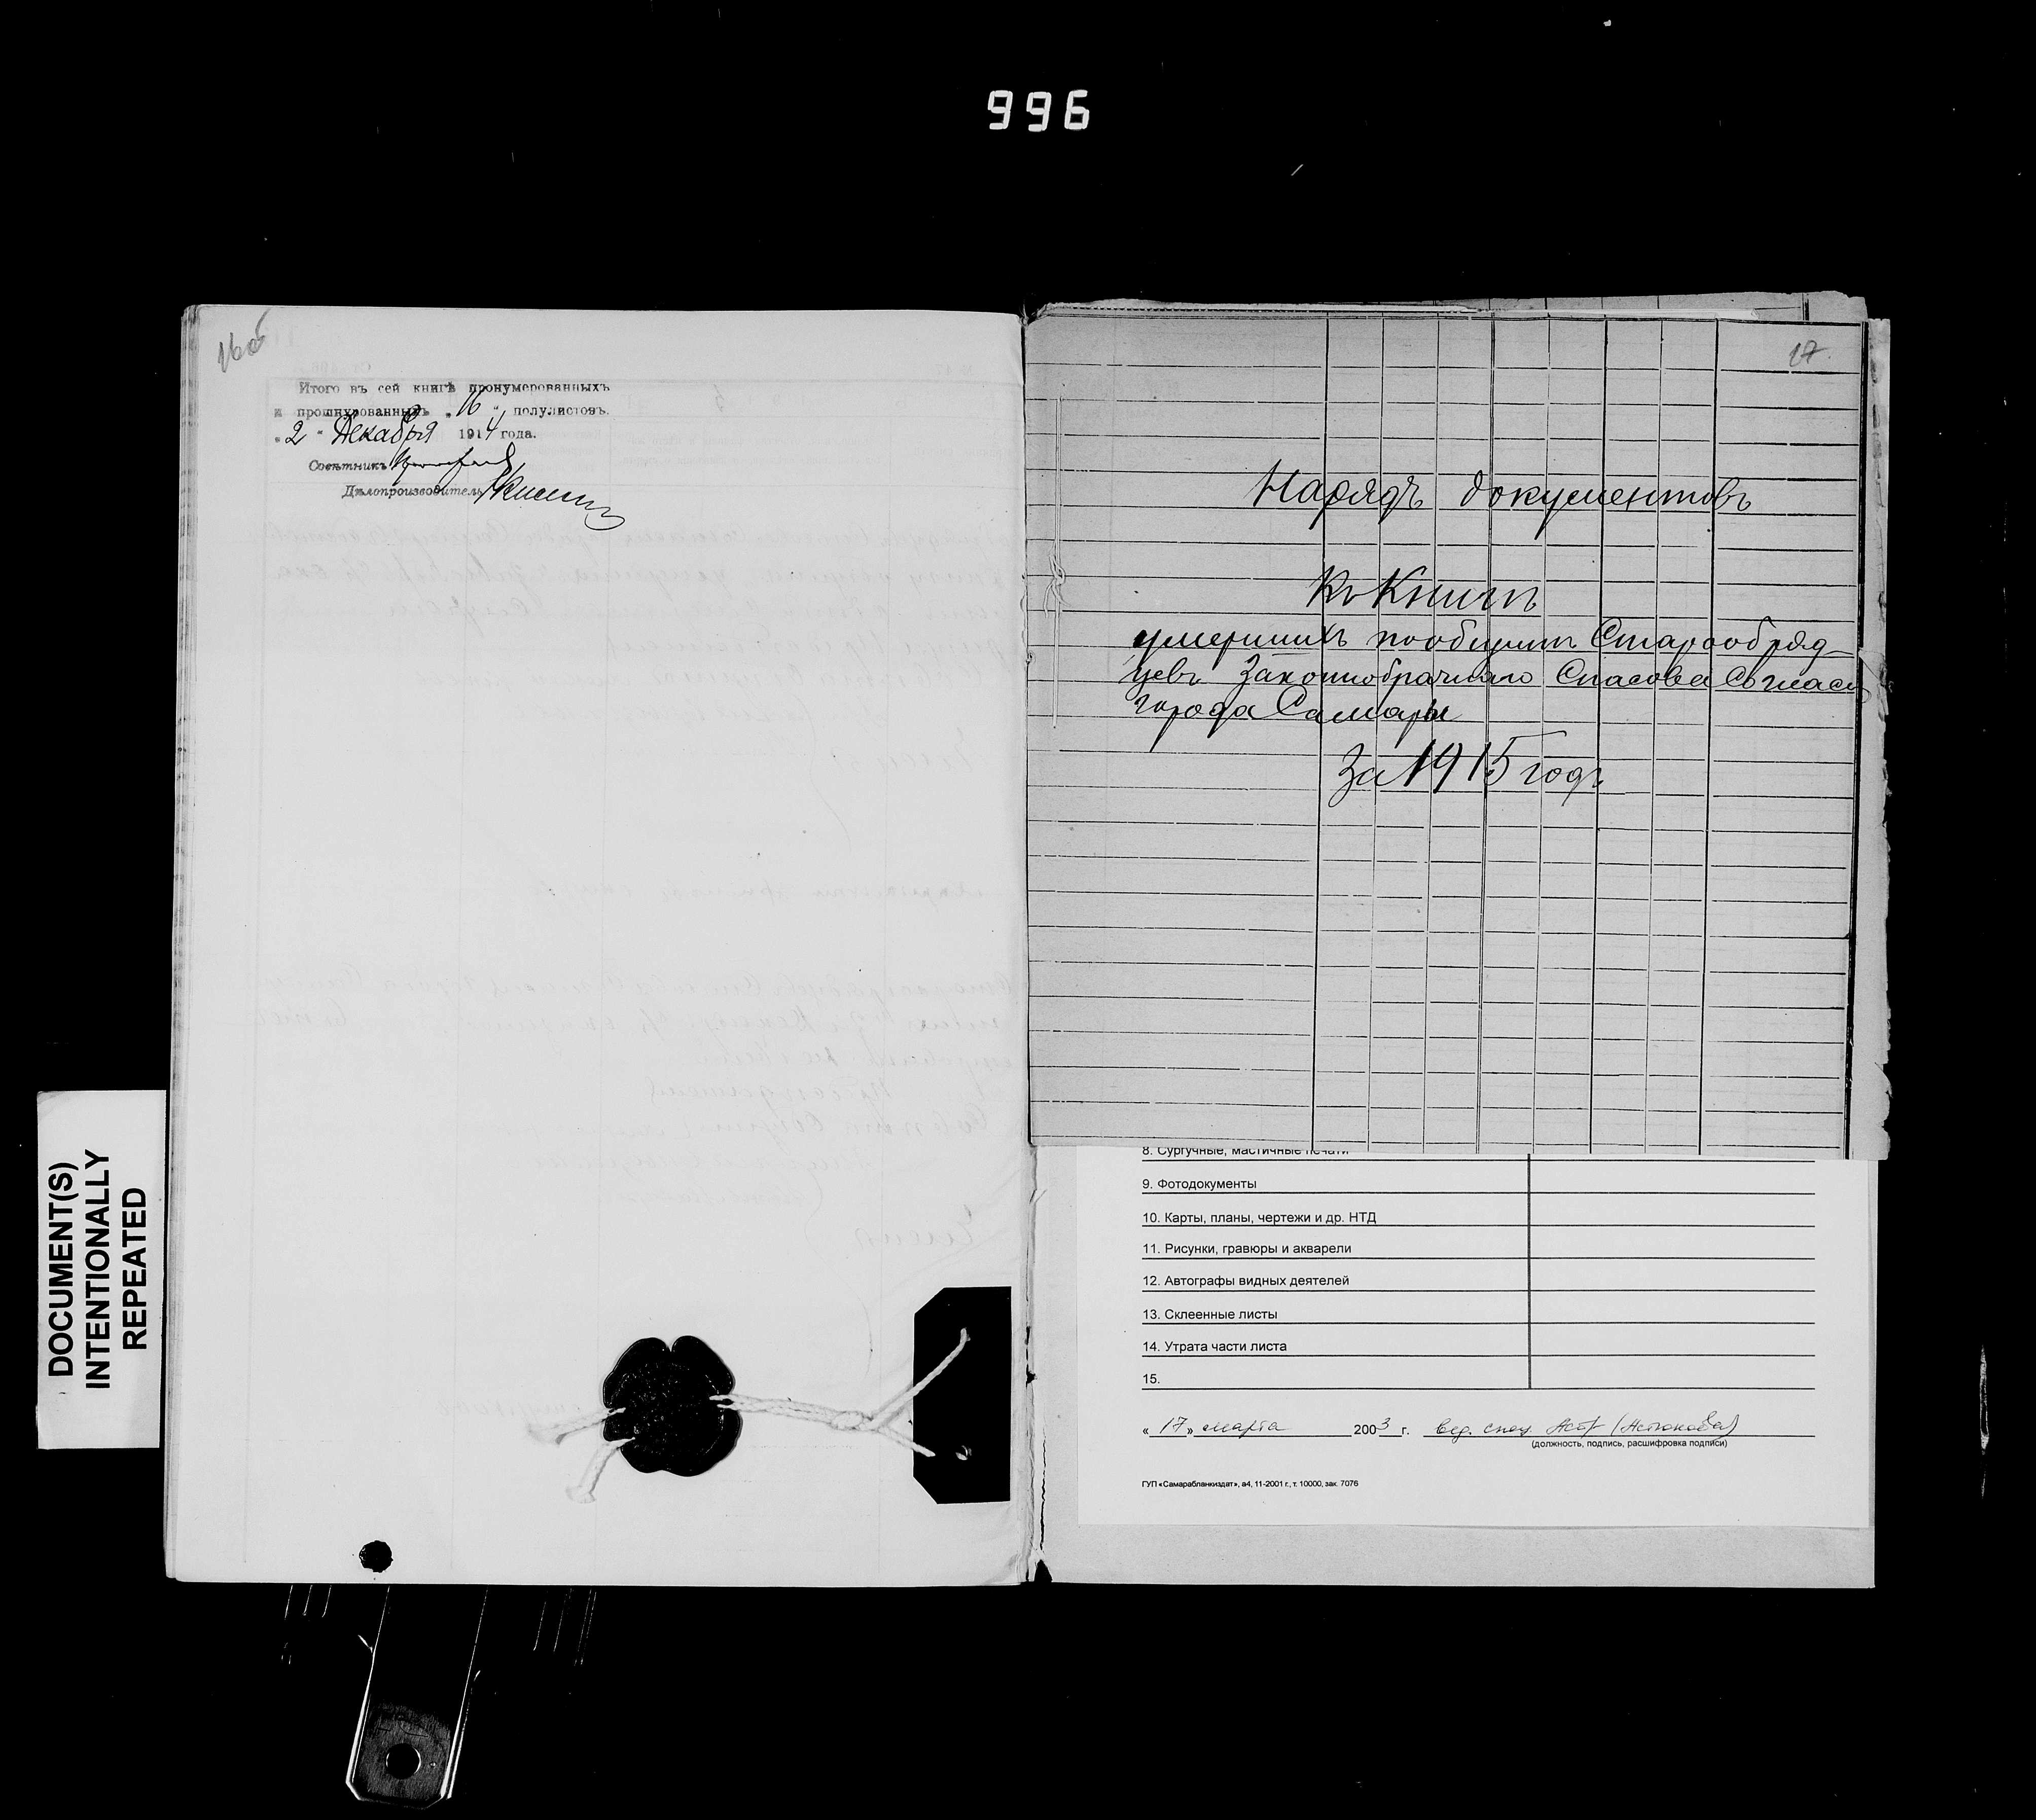 996
16об
Итого въ сей книгѣ пронумерованныхъ
и прошнурованныхъ „ 16 " полулистовъ.
„ 2 " Декабря 1914 года.
Совѣтникъ
Дѣлопроизводитель
DOCUMENT(S)
INTENTIONALLY
REPEATED
17.
Нарядъ документовъ
Къ Книгѣ
умершихъ по общинѣ Старообряд-
цевъ Законнобрачнаго Спасова Согласія
города Самары
За 1915 годъ
8. Сургучные, мастичные печати
9. Фотодокументы
10. Карты, планы, чертежи и др. НТД
11. Рисунки, гравюры и акварели
12. Автографы видных деятелей
13. Склеенные листы
14. Утрата части листа
15.
« 17 » марта 2003 г. вед. спец.
(должность, подпись, расшифровка подписи)
ГУП «Самарабланкиздат», а4, 11-2001 г., т. 10000, зак. 7076